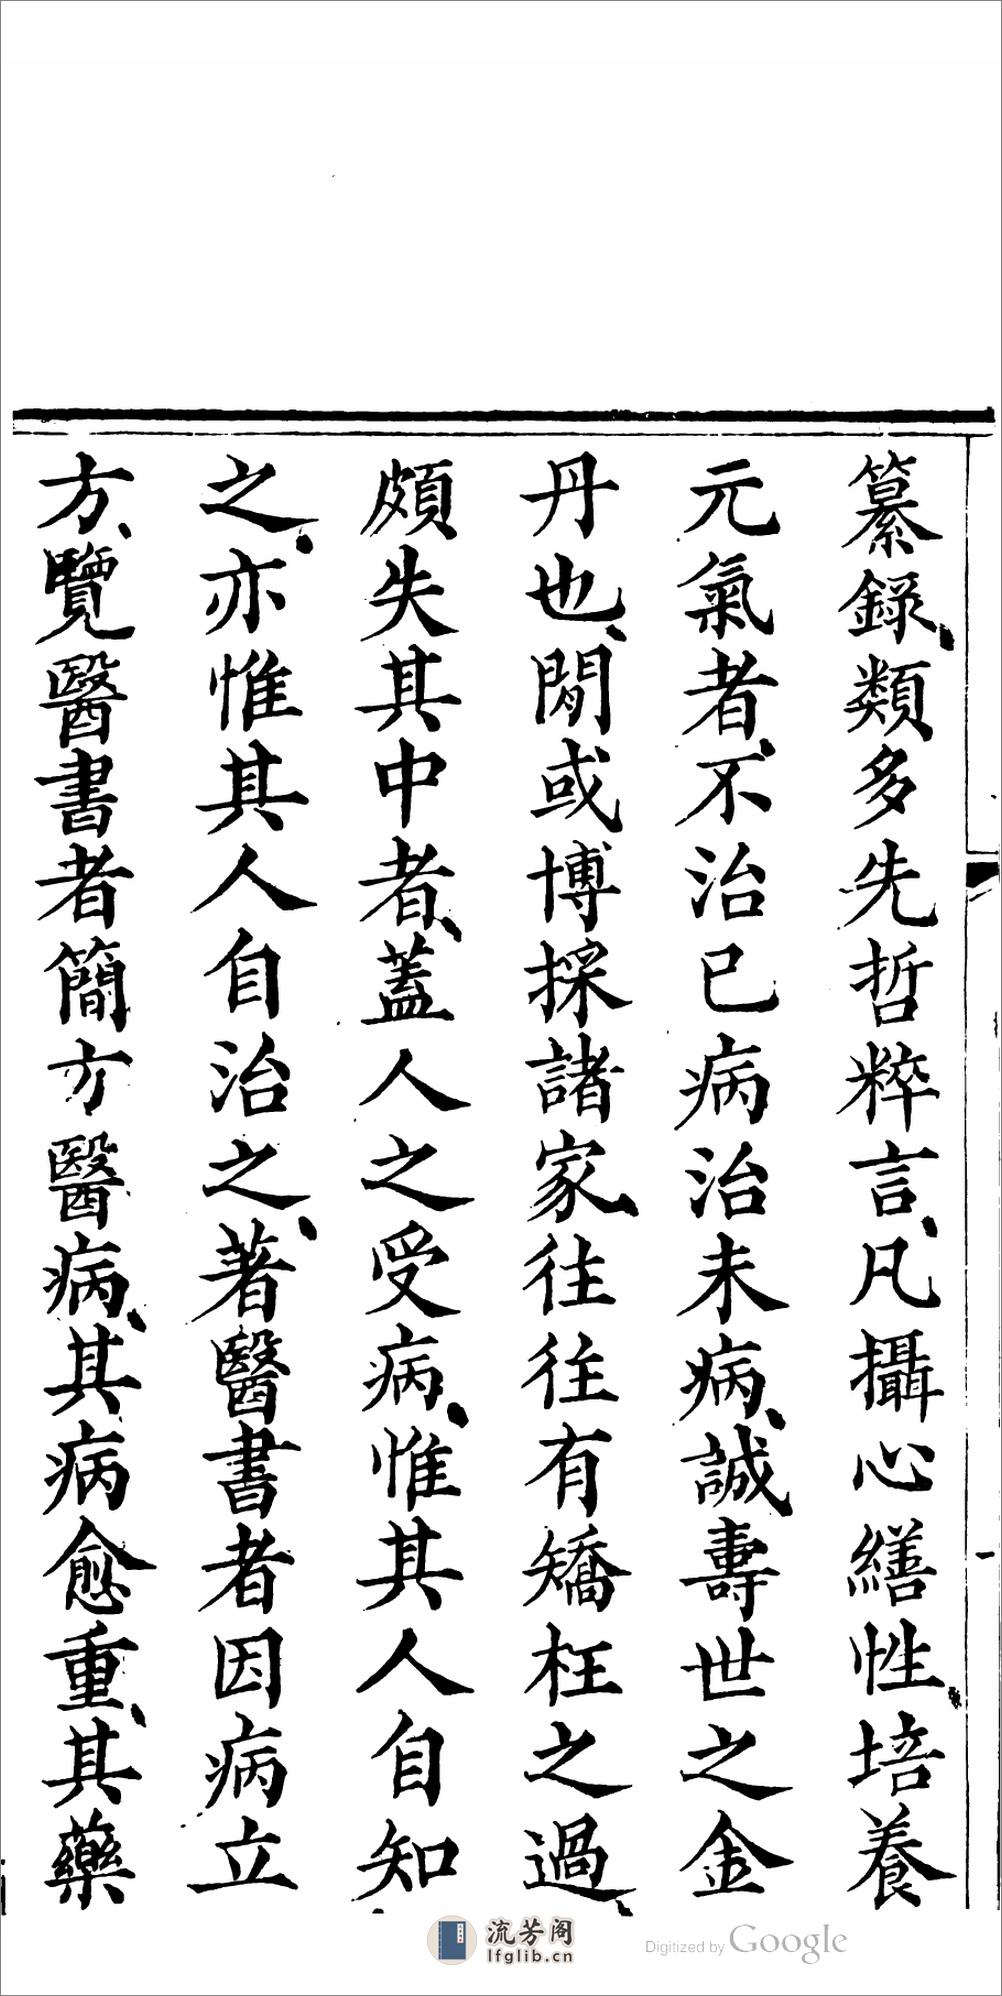 纂錄、類多先哲粹言、凡攝心繕性、培養
元氣者、不治已病治未病、誠壽世之金
丹也、閒或博採諸家、往往有矯枉之過、
頗失其中者、蓋人之受病、惟其人自知
之、亦惟其人自治之、著醫書者因病立
方、覽醫書者簡方醫病、其病愈重、其藥
流芳阁
lfglib.cn
Digitized by Google